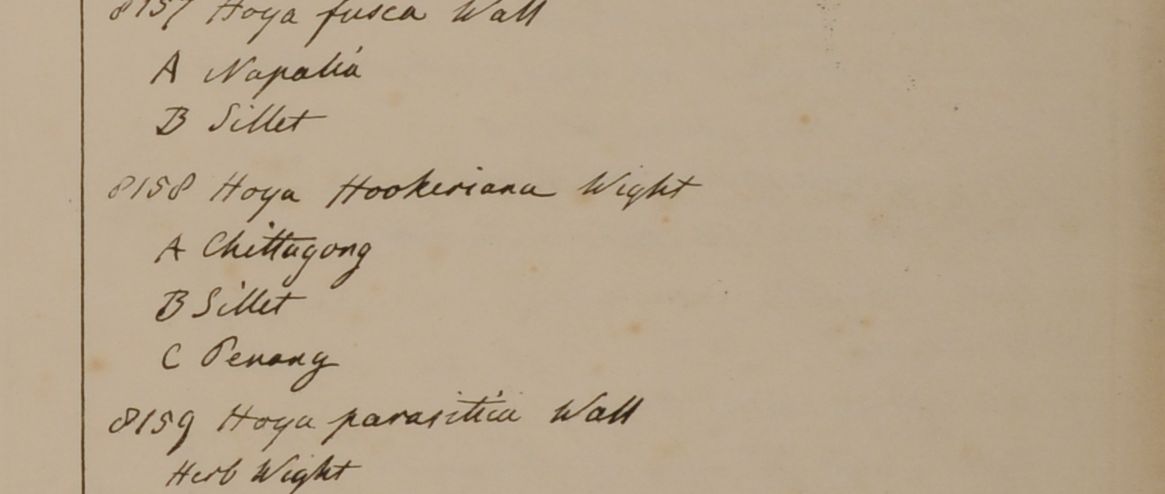 8157 Hoya fusca Wall
A Napalia
B Sillet
8158 Hoya Hookeriana Wight
A Chittagong
B Sillet
C Penang
8159 Hoya parasitica Wall
Herb Wight